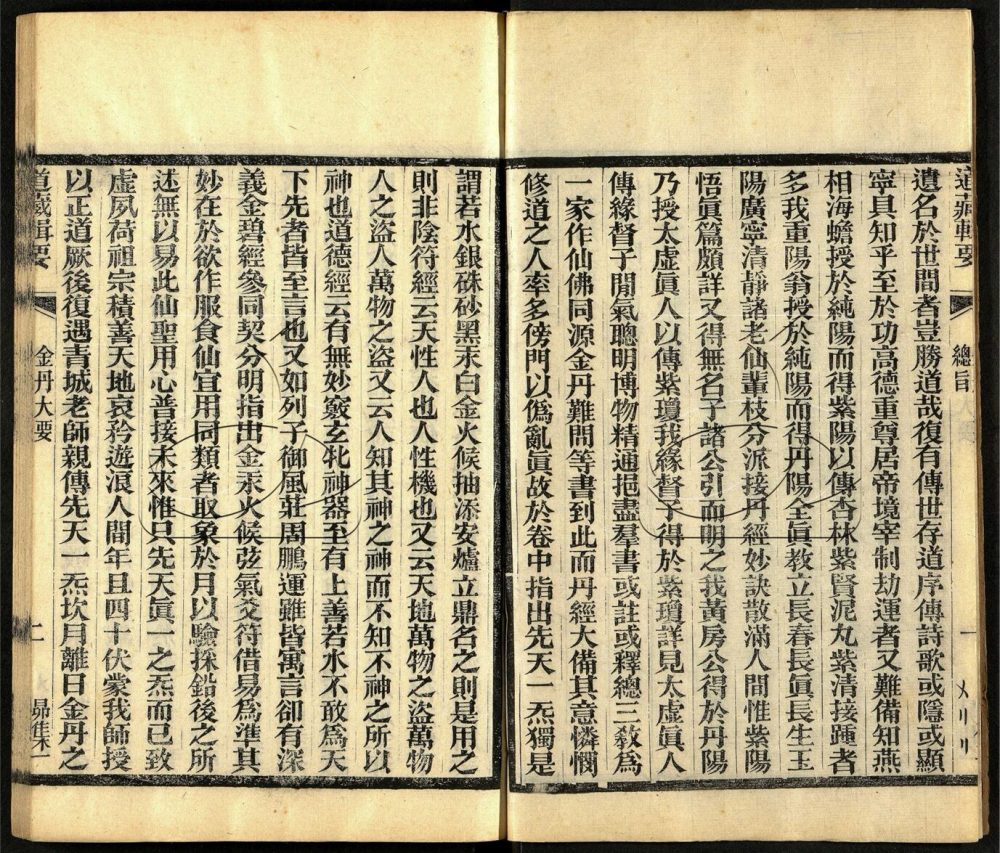 道藏輯要 總旨 一
遺名於世間者豈勝道哉復有傳世存道序傳詩歌或隱或顯
寧具知乎至於功高德重尊居帝境宰制劫運者又難備知燕
相海蟾授於純陽而得紫陽以傳杏林紫賢泥丸紫清接踵者
多我重陽翁授於純陽而得丹陽全眞教立長春長眞長生玉
陽廣寧清靜諸老仙輩枝分派接丹經妙訣散滿人間惟紫陽
悟眞篇頗詳又得無名子諸公引而明之我黃房公得於丹陽
乃授太虛眞人以傳紫瓊我緣督子得於紫瓊詳見太虛眞人
傳緣督子間氣聰明博物精通挹盡羣書或註或釋總三敎爲
一家作仙佛同源金丹難問等書到此而丹經大備其意憐憫
修道之人率多傍門以僞亂眞故於卷中指出先天一炁獨是
謂若水銀硃砂黑汞白金火候抽添安爐立鼎名之則是用之
則非陰符經云天性人也人性機也又云天地萬物之盜萬物
人之盜人萬物之盜又云人知其神之神而不知不神之所以
神也道德經云有無妙竅玄牝神器至有上善若水不敢爲天
下先者皆至言也又如列子御風莊周鵬運雖皆寓言卻有深
義金碧經參同契分明指出金汞火候弦氣爻符借易爲準其
妙在於欲作服食仙宜用同類者取象於月以驗採鉛後之所
述無以易此仙聖用心普接未來惟只先天眞一之炁而已致
虛夙荷祖宗積善天地哀矜遊浪人間年且四十伏蒙我師授
以正道厥後復遇青城老師親傳先天一炁坎月離日金丹之
道藏輯要 金丹大要 二 昴集一